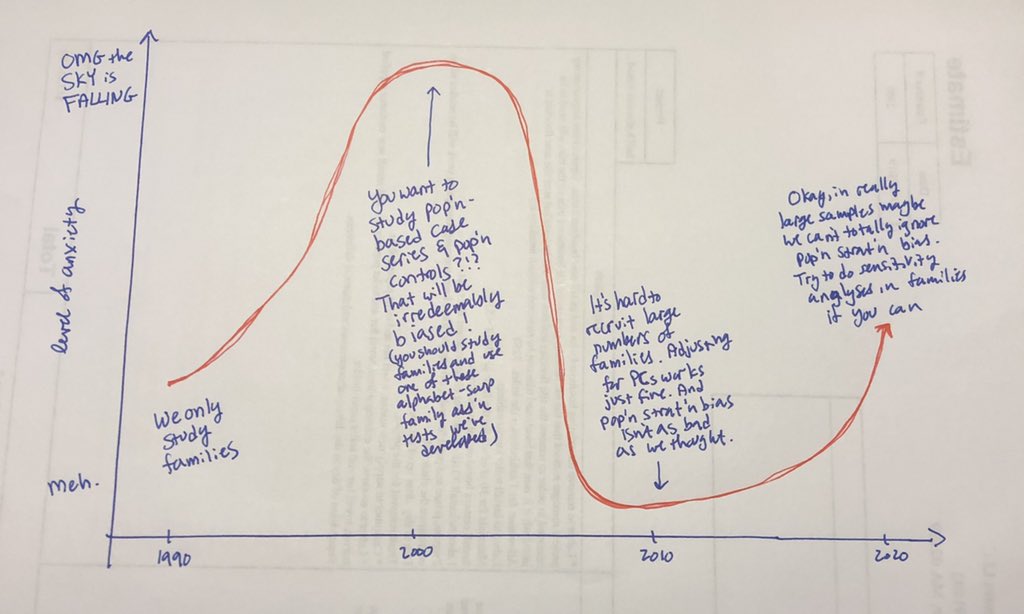 OMG the
SKY is
FALLING
level of anxiety
Meh.
We only
study
families
You want to
study pop'n-
based case
series & pop'n
controls?!?
That will be
irredeemably
biased!
(you should study
families and use
one of these
alphabet-soup
family ass'n
tests we've
developed)
It's hard to
recruit large
numbers of
families. Adjusting
for PCs works
just fine. And
pop'n strat'n bias
isn't as bad
as we thought.
Okay, in really
large samples maybe
we can't totally ignore
pop'n strat'n bias.
Try to do sensitivity
analyses in families
if you can
1990
2000
2010
2020
Estimate
Total